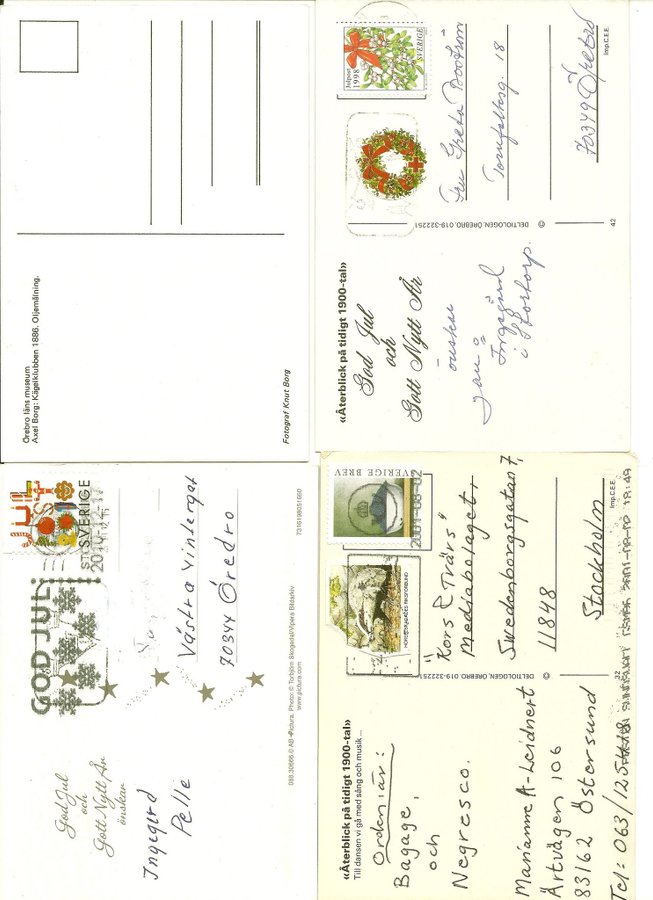 Örebro läns museum
Axel Borg: Kägelklubben 1886. Oljemålning.
Fotograf Knut Borg
Julpost
1998
SVERIGE
Fru Greta Boström
Tornfalksg. 18
70349 Örebro
Imp.C.E.E.
DELTIOLOGEN, ÖREBRO, 019-322251 ©
42
«Återblick på tidigt 1900-tal»
God Jul
och
Gott Nytt År
önskar
Jan o
Ingegerd
i Stortorp.
SVERIGE
GOD JUL
Västra Vintergat
70344 Örebro
7316198051660
088.30666 © AB Pictura. Photo: © Torbjörn Skogedal/Vipera Bildarkiv
www.pictura.com
God Jul
och
Gott Nytt År
önskar
Ingegerd
Pelle
SVERIGE BREV
2001-08-02
"Kors & Tvärs"
Mediabolaget,
Swedenborgsgatan 7,
11848
Stockholm
Imp.C.E.E.
DELTIOLOGEN, ÖREBRO, 019-322251 ©
32
«Återblick på tidigt 1900-tal»
Till dansen vi gå med sång och musik ...
Orden är:
Bagage,
och
Negresco.
Marianne A-Leidnert
Ärtvägen 106
83162 Östersund
Tel: 063/125418